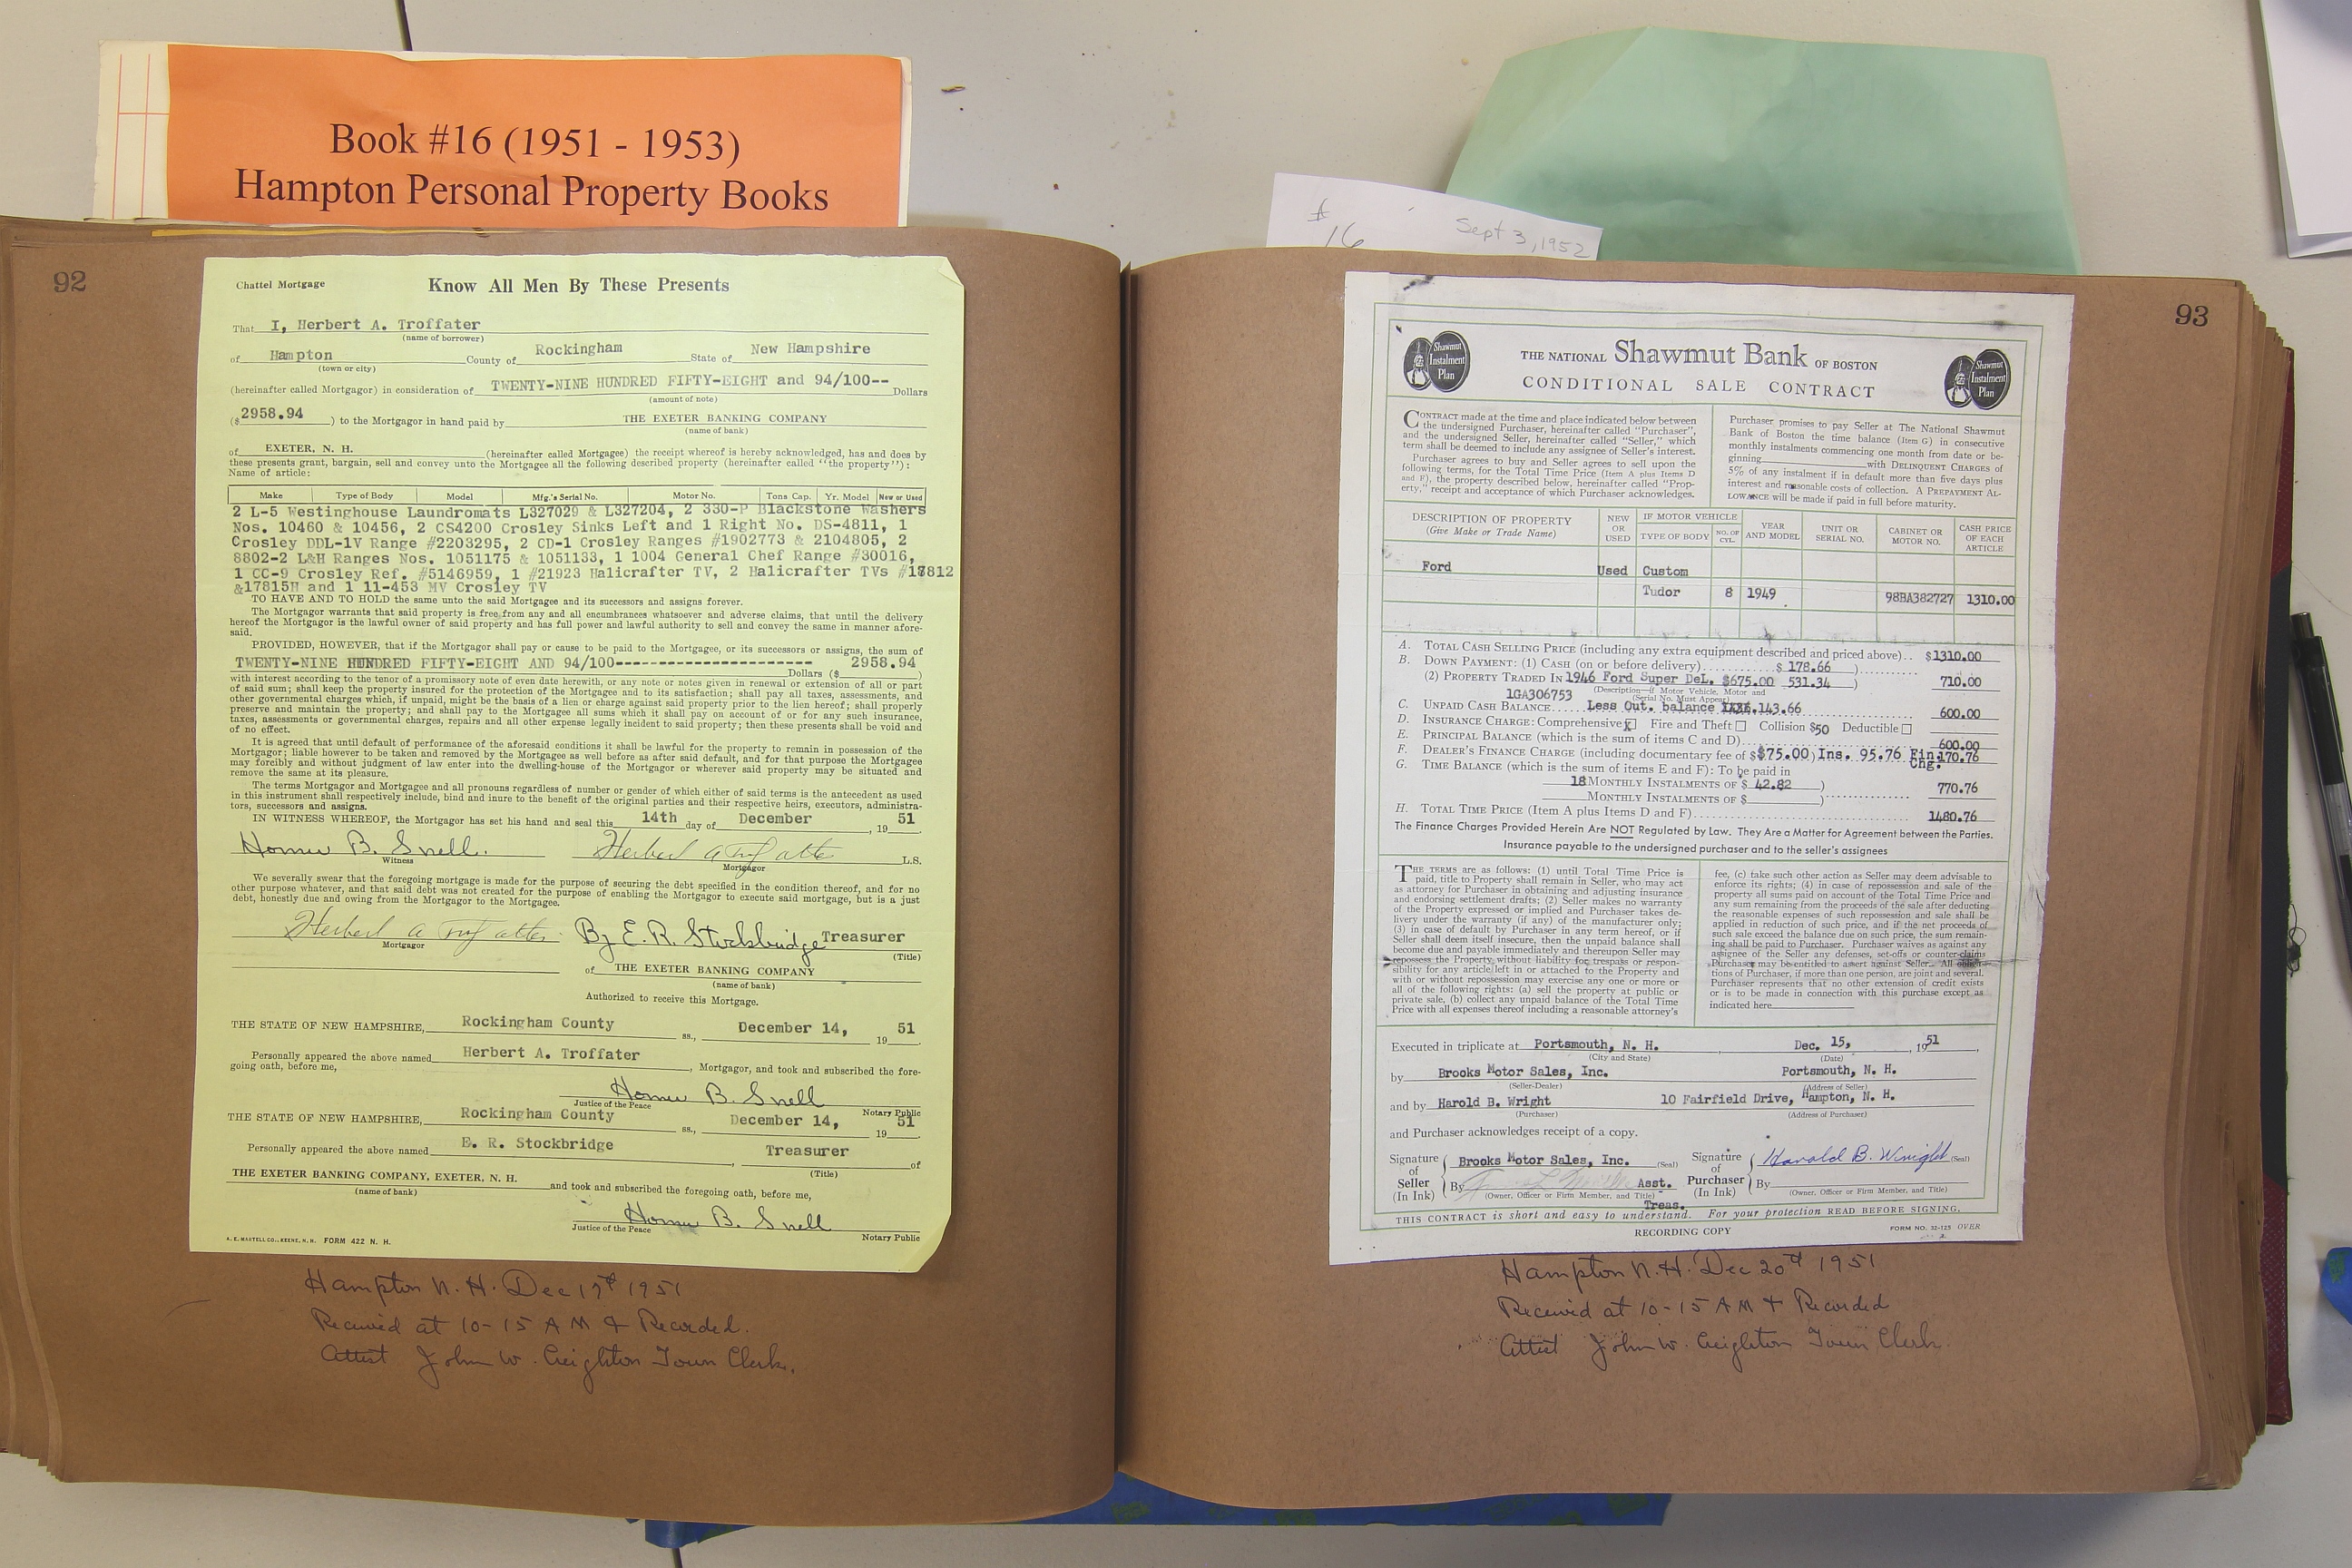 Book #16 (1951 - 1953)
Hampton Personal Property Books
#
16
Sept 3, 1952
92
Chattel Mortgage
Know All Men By These Presents
That I, Herbert A. Troffater
(name of borrower)
of Hampton County of Rockingham State of New Hampshire
(town or city)
(hereinafter called Mortgagor) in consideration of TWENTY-NINE HUNDRED FIFTY-EIGHT and 94/100-- Dollars
(amount of note)
($ 2958.94 ) to the Mortgagor in hand paid by THE EXETER BANKING COMPANY
(name of bank)
of EXETER, N. H. (hereinafter called Mortgagee) the receipt whereof is hereby acknowledged, has and does by
these presents grant, bargain, sell and convey unto the Mortgagee all the following described property (hereinafter called "the property"):
Name of article:
Make Type of Body Model Mfg.'s Serial No. Motor No. Tons Cap. Yr. Model New or Used
2 L-5 Westinghouse Laundromats L327029 & L327204, 2 330-P Blackstone Washers
Nos. 10460 & 10456, 2 CS4200 Crosley Sinks Left and 1 Right No. DS-4811, 1
Crosley DDL-1V Range #2203295, 2 CD-1 Crosley Ranges #1902773 & 2104805, 2
8802-2 L&H Ranges Nos. 1051175 & 1051133, 1 1004 General Chef Range #30016,
1 CC-9 Crosley Ref. #5146959, 1 #21923 Halicrafter TV, 2 Halicrafter TVs #17812
&17815H and 1 11-453 MV Crosley TV
TO HAVE AND TO HOLD the same unto the said Mortgagee and its successors and assigns forever.
The Mortgagor warrants that said property is free from any and all encumbrances whatsoever and adverse claims, that until the delivery
hereof the Mortgagor is the lawful owner of said property and has full power and lawful authority to sell and convey the same in manner afore-
said.
PROVIDED, HOWEVER, that if the Mortgagor shall pay or cause to be paid to the Mortgagee, or its successors or assigns, the sum of
TWENTY-NINE HUNDRED FIFTY-EIGHT AND 94/100--------------------- Dollars ($ 2958.94 )
with interest according to the tenor of a promissory note of even date herewith, or any note or notes given in renewal or extension of all or part
of said sum; shall keep the property insured for the protection of the Mortgagee and to its satisfaction; shall pay all taxes, assessments, and
other governmental charges which, if unpaid, might be the basis of a lien or charge against said property prior to the lien hereof; shall properly
preserve and maintain the property; and shall pay to the Mortgagee all sums which it shall pay on account of or for any such insurance,
taxes, assessments or governmental charges, repairs and all other expense legally incident to said property; then these presents shall be void and
of no effect.
It is agreed that until default of performance of the aforesaid conditions it shall be lawful for the property to remain in possession of the
Mortgagor; liable however to be taken and removed by the Mortgagee as well before as after said default, and for that purpose the Mortgagee
may forcibly and without judgment of law enter into the dwelling-house of the Mortgagor or wherever said property may be situated and
remove the same at its pleasure.
The terms Mortgagor and Mortgagee and all pronouns regardless of number or gender of which either of said terms is the antecedent as used
in this instrument shall respectively include, bind and inure to the benefit of the original parties and their respective heirs, executors, administra-
tors, successors and assigns.
IN WITNESS WHEREOF, the Mortgagor has set his hand and seal this 14th day of December, 19 51
Homer B. Snell. Herbert A Troffatter L.S.
Witness Mortgagor
We severally swear that the foregoing mortgage is made for the purpose of securing the debt specified in the condition thereof, and for no
other purpose whatever, and that said debt was not created for the purpose of enabling the Mortgagor to execute said mortgage, but is a just
debt, honestly due and owing from the Mortgagor to the Mortgagee.
Herbert A Troffatter By E. R. Stockbridge Treasurer
Mortgagor (Title)
of THE EXETER BANKING COMPANY
(name of bank)
Authorized to receive this Mortgage.
THE STATE OF NEW HAMPSHIRE, Rockingham County ss., December 14, 19 51
Personally appeared the above named Herbert A. Troffater, Mortgagor, and took and subscribed the fore-
going oath, before me,
Homer B. Snell
Justice of the Peace Notary Public
THE STATE OF NEW HAMPSHIRE, Rockingham County ss., December 14, 19 51
Personally appeared the above named E. R. Stockbridge, Treasurer of
(Title)
THE EXETER BANKING COMPANY, EXETER, N. H. and took and subscribed the foregoing oath, before me,
(name of bank)
Homer B. Snell
Justice of the Peace Notary Public
A. E. MARTELL CO., KEENE, N. H. FORM 422 N. H.
Hampton N. H. Dec 17th 1951
Received at 10-15 AM & Recorded.
Attest John W. Creighton Town Clerk.
93
Shawmut Instalment Plan
THE NATIONAL Shawmut Bank OF BOSTON
CONDITIONAL SALE CONTRACT
Shawmut Instalment Plan
CONTRACT made at the time and place indicated below between
the undersigned Purchaser, hereinafter called "Purchaser",
and the undersigned Seller, hereinafter called "Seller," which
term shall be deemed to include any assignee of Seller's interest.
Purchaser agrees to buy and Seller agrees to sell upon the
following terms, for the Total Time Price (Item A plus Items D
and F), the property described below, hereinafter called "Prop-
erty," receipt and acceptance of which Purchaser acknowledges.
Purchaser promises to pay Seller at The National Shawmut
Bank of Boston the time balance (Item G) in consecutive
monthly instalments commencing one month from date or be-
ginning with DELINQUENT CHARGES of
5% of any instalment if in default more than five days plus
interest and reasonable costs of collection. A PREPAYMENT AL-
LOWANCE will be made if paid in full before maturity.
DESCRIPTION OF PROPERTY
(Give Make or Trade Name)
NEW OR USED
IF MOTOR VEHICLE
TYPE OF BODY NO. OF CYL.
YEAR AND MODEL
UNIT OR SERIAL NO.
CABINET OR MOTOR NO.
CASH PRICE OF EACH ARTICLE
Ford Used Custom
Tudor 8 1949 98BA382727 1310.00
A. TOTAL CASH SELLING PRICE (including any extra equipment described and priced above).. $1310.00
B. DOWN PAYMENT: (1) CASH (on or before delivery)........... $ 178.66 )
(2) PROPERTY TRADED IN 1946 Ford Super DeL. $675.00 531.34 ) 710.00
1GA306753 (Description—if Motor Vehicle, Motor and
(Serial No. Must Appear)
C. UNPAID CASH BALANCE..... Less Out. balance 143.66 600.00
D. INSURANCE CHARGE: Comprehensive X Fire and Theft Collision $50 Deductible
E. PRINCIPAL BALANCE (which is the sum of items C and D)........ 600.00
F. DEALER'S FINANCE CHARGE (including documentary fee of $ $75.00) Ins. 95.76 Fin. Chg. 170.76
G. TIME BALANCE (which is the sum of items E and F): To be paid in
18 MONTHLY INSTALMENTS OF $ 42.82 ) 770.76
MONTHLY INSTALMENTS OF $ )
H. TOTAL TIME PRICE (Item A plus Items D and F)........ 1480.76
The Finance Charges Provided Herein Are NOT Regulated by Law. They Are a Matter for Agreement between the Parties.
Insurance payable to the undersigned purchaser and to the seller's assignees
THE TERMS are as follows: (1) until Total Time Price is
paid, title to Property shall remain in Seller, who may act
as attorney for Purchaser in obtaining and adjusting insurance
and endorsing settlement drafts; (2) Seller makes no warranty
of the Property expressed or implied and Purchaser takes de-
livery under the warranty (if any) of the manufacturer only;
(3) in case of default by Purchaser in any term hereof, or if
Seller shall deem itself insecure, then the unpaid balance shall
become due and payable immediately and thereupon Seller may
repossess the Property without liability for trespass or respon-
sibility for any article left in or attached to the Property and
with or without repossession may exercise any one or more or
all of the following rights: (a) sell the property at public or
private sale, (b) collect any unpaid balance of the Total Time
Price with all expenses thereof including a reasonable attorney's
fee, (c) take such other action as Seller may deem advisable to
enforce its rights; (4) in case of repossession and sale of the
property all sums paid on account of the Total Time Price and
any sum remaining from the proceeds of the sale after deducting
the reasonable expenses of such repossession and sale shall be
applied in reduction of such price, and if the net proceeds of
such sale exceed the balance due on such price, the sum remain-
ing shall be paid to Purchaser. Purchaser waives as against any
assignee of the Seller any defenses, set-offs or counter-claims
Purchaser may be entitled to assert against Seller. All obliga-
tions of Purchaser, if more than one person, are joint and several.
Purchaser represents that no other extension of credit exists
or is to be made in connection with this purchase except as
indicated here
Executed in triplicate at Portsmouth, N. H., Dec. 15, 19 51,
(City and State) (Date)
by Brooks Motor Sales, Inc. Portsmouth, N. H.
(Seller-Dealer) (Address of Seller)
and by Harold B. Wright 10 Fairfield Drive, Hampton, N. H.
(Purchaser) (Address of Purchaser)
and Purchaser acknowledges receipt of a copy.
Signature of Seller (In Ink)
Brooks Motor Sales, Inc. (Seal)
By Asst. Treas.
(Owner, Officer or Firm Member, and Title)
Signature of Purchaser (In Ink)
Harold B. Wright (Seal)
By
(Owner, Officer or Firm Member, and Title)
THIS CONTRACT is short and easy to understand. For your protection READ BEFORE SIGNING.
RECORDING COPY
FORM NO. 32-125 OVER
Hampton N. H. Dec 20th 1951
Received at 10-15 AM & Recorded
Attest John W. Creighton Town Clerk.